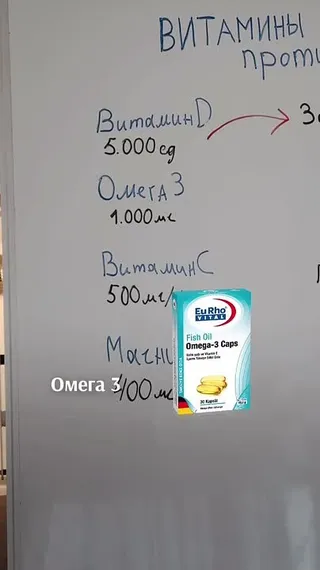 ВИТАМИНЫ
проти
Витамин D
5.000 ед
За
Омега 3
1.000 мг
Витамин C
500 мг/
Магни
400 мг
Омега 3
EuRho
VITAL
Fish Oil
Omega-3 Caps
30 Kapsül